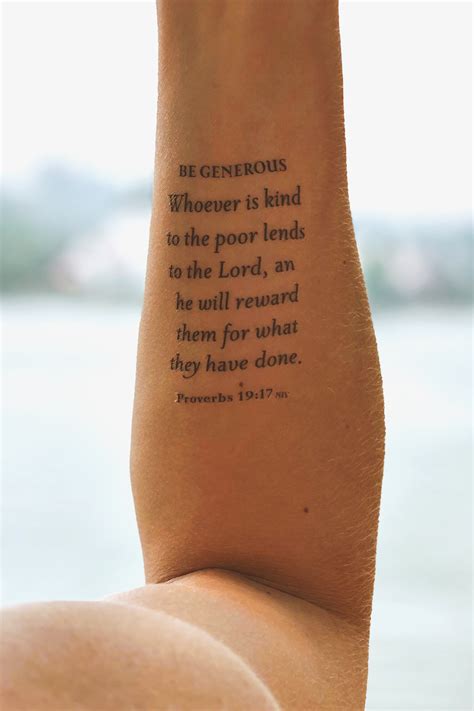 BE GENEROUS
Whoever is kind
to the poor lends
to the Lord, an
he will reward
them for what
they have done.
Proverbs 19:17 NIV